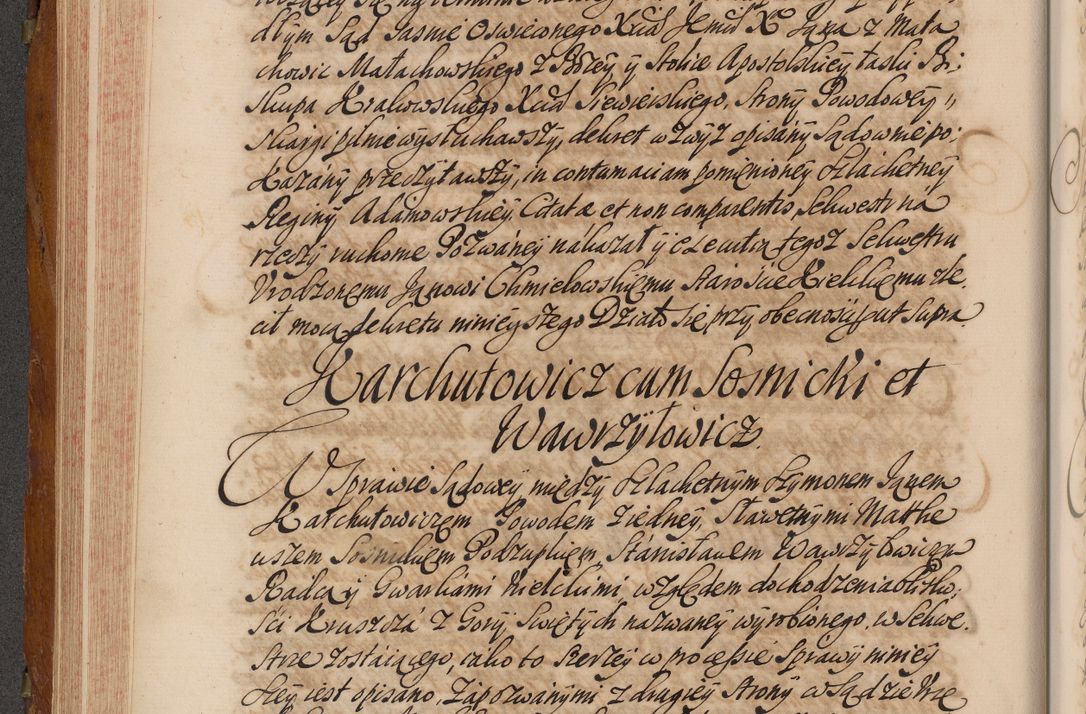 dłym Sąd Jasnie Oswieconego Xcia Jemci X Jana z Mała
chowic Małachowskiego z Bożey y Stolice Apostolskiey łaski Bi:
skupa Krakowskiego Xcia Siewierskiego, Strony Powodowey
skargi pilnie wysłuchawszy, dekret wzwyż opisany sądownie po:
kazany przeczytawszy, in contumaciam pomienioney Szlachetney
Reginy Adamowskiey Citatæ et non comparentis, sekwestr na
rzeczy ruchome Pozwaney nakazał y execucią tegoż Sekwestru
Vrodzonemu Janowi Chmielowskiemu Staroscie Kieleckiemu zle.
cił mocą dekretu nineyszego Działo się przy obecnosci, ut supra.
Karchutowicz cum Sosnicki et
Wawrzyłowicz.
W Sprawie Sądowey między Szlachetnym Szymonem Janem
Karchutowiczem Powodem z iedney, Sławetnymi Matthe
uszem Sosnickiem Podzupkiem, Stanisławem Wawrzyłowiczem
Radcą y Gwarkami Kieleckimi, względem dochodzenia
sci Kruszcza z Gory Swiętych nazwaney wyrobionego, w Sekwe.
strze zostaiącego, iako to szerzey w processie Sprawy niniey
szey iest opisano, Zapozwanymi z drugiey Strony w Sądzie